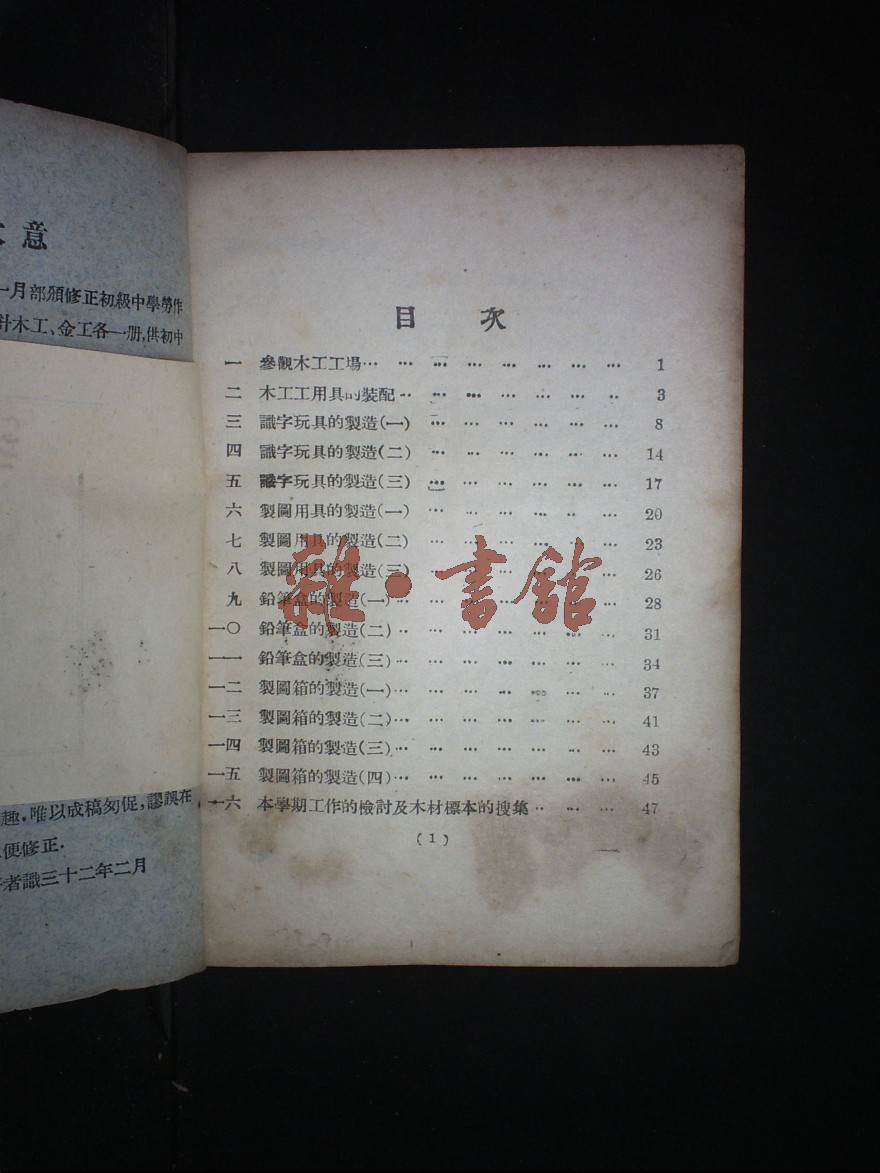 意
一月部頒修正初級中學勞作
計木工、金工各一册,供初中
趣,唯以成稿匆促,謬誤在
便修正.
者識三十二年二月
目 次
一 參觀木工工場… … … … … … … … 1
二 木工工用具的裝配… … … … … … … 3
三 識字玩具的製造(一) … … … … … … 8
四 識字玩具的製造(二) … … … … … … 14
五 識字玩具的製造(三) … … … … … … 17
六 製圖用具的製造(一) … … … … … … 20
七 製圖用具的製造(二) … … … … … … 23
八 製圖用具的製造(三) … … … … … … 26
九 鉛筆盒的製造(一)… … … … … … … 28
一〇 鉛筆盒的製造(二)… … … … … … … 31
一一 鉛筆盒的製造(三)… … … … … … … 34
一二 製圖箱的製造(一)… … … … … … … 37
一三 製圖箱的製造(二)… … … … … … … 41
一四 製圖箱的製造(三)… … … … … … … 43
一五 製圖箱的製造(四)… … … … … … … 45
一六 本學期工作的檢討及木材標本的搜集… … … 47
(1)
雜·書館